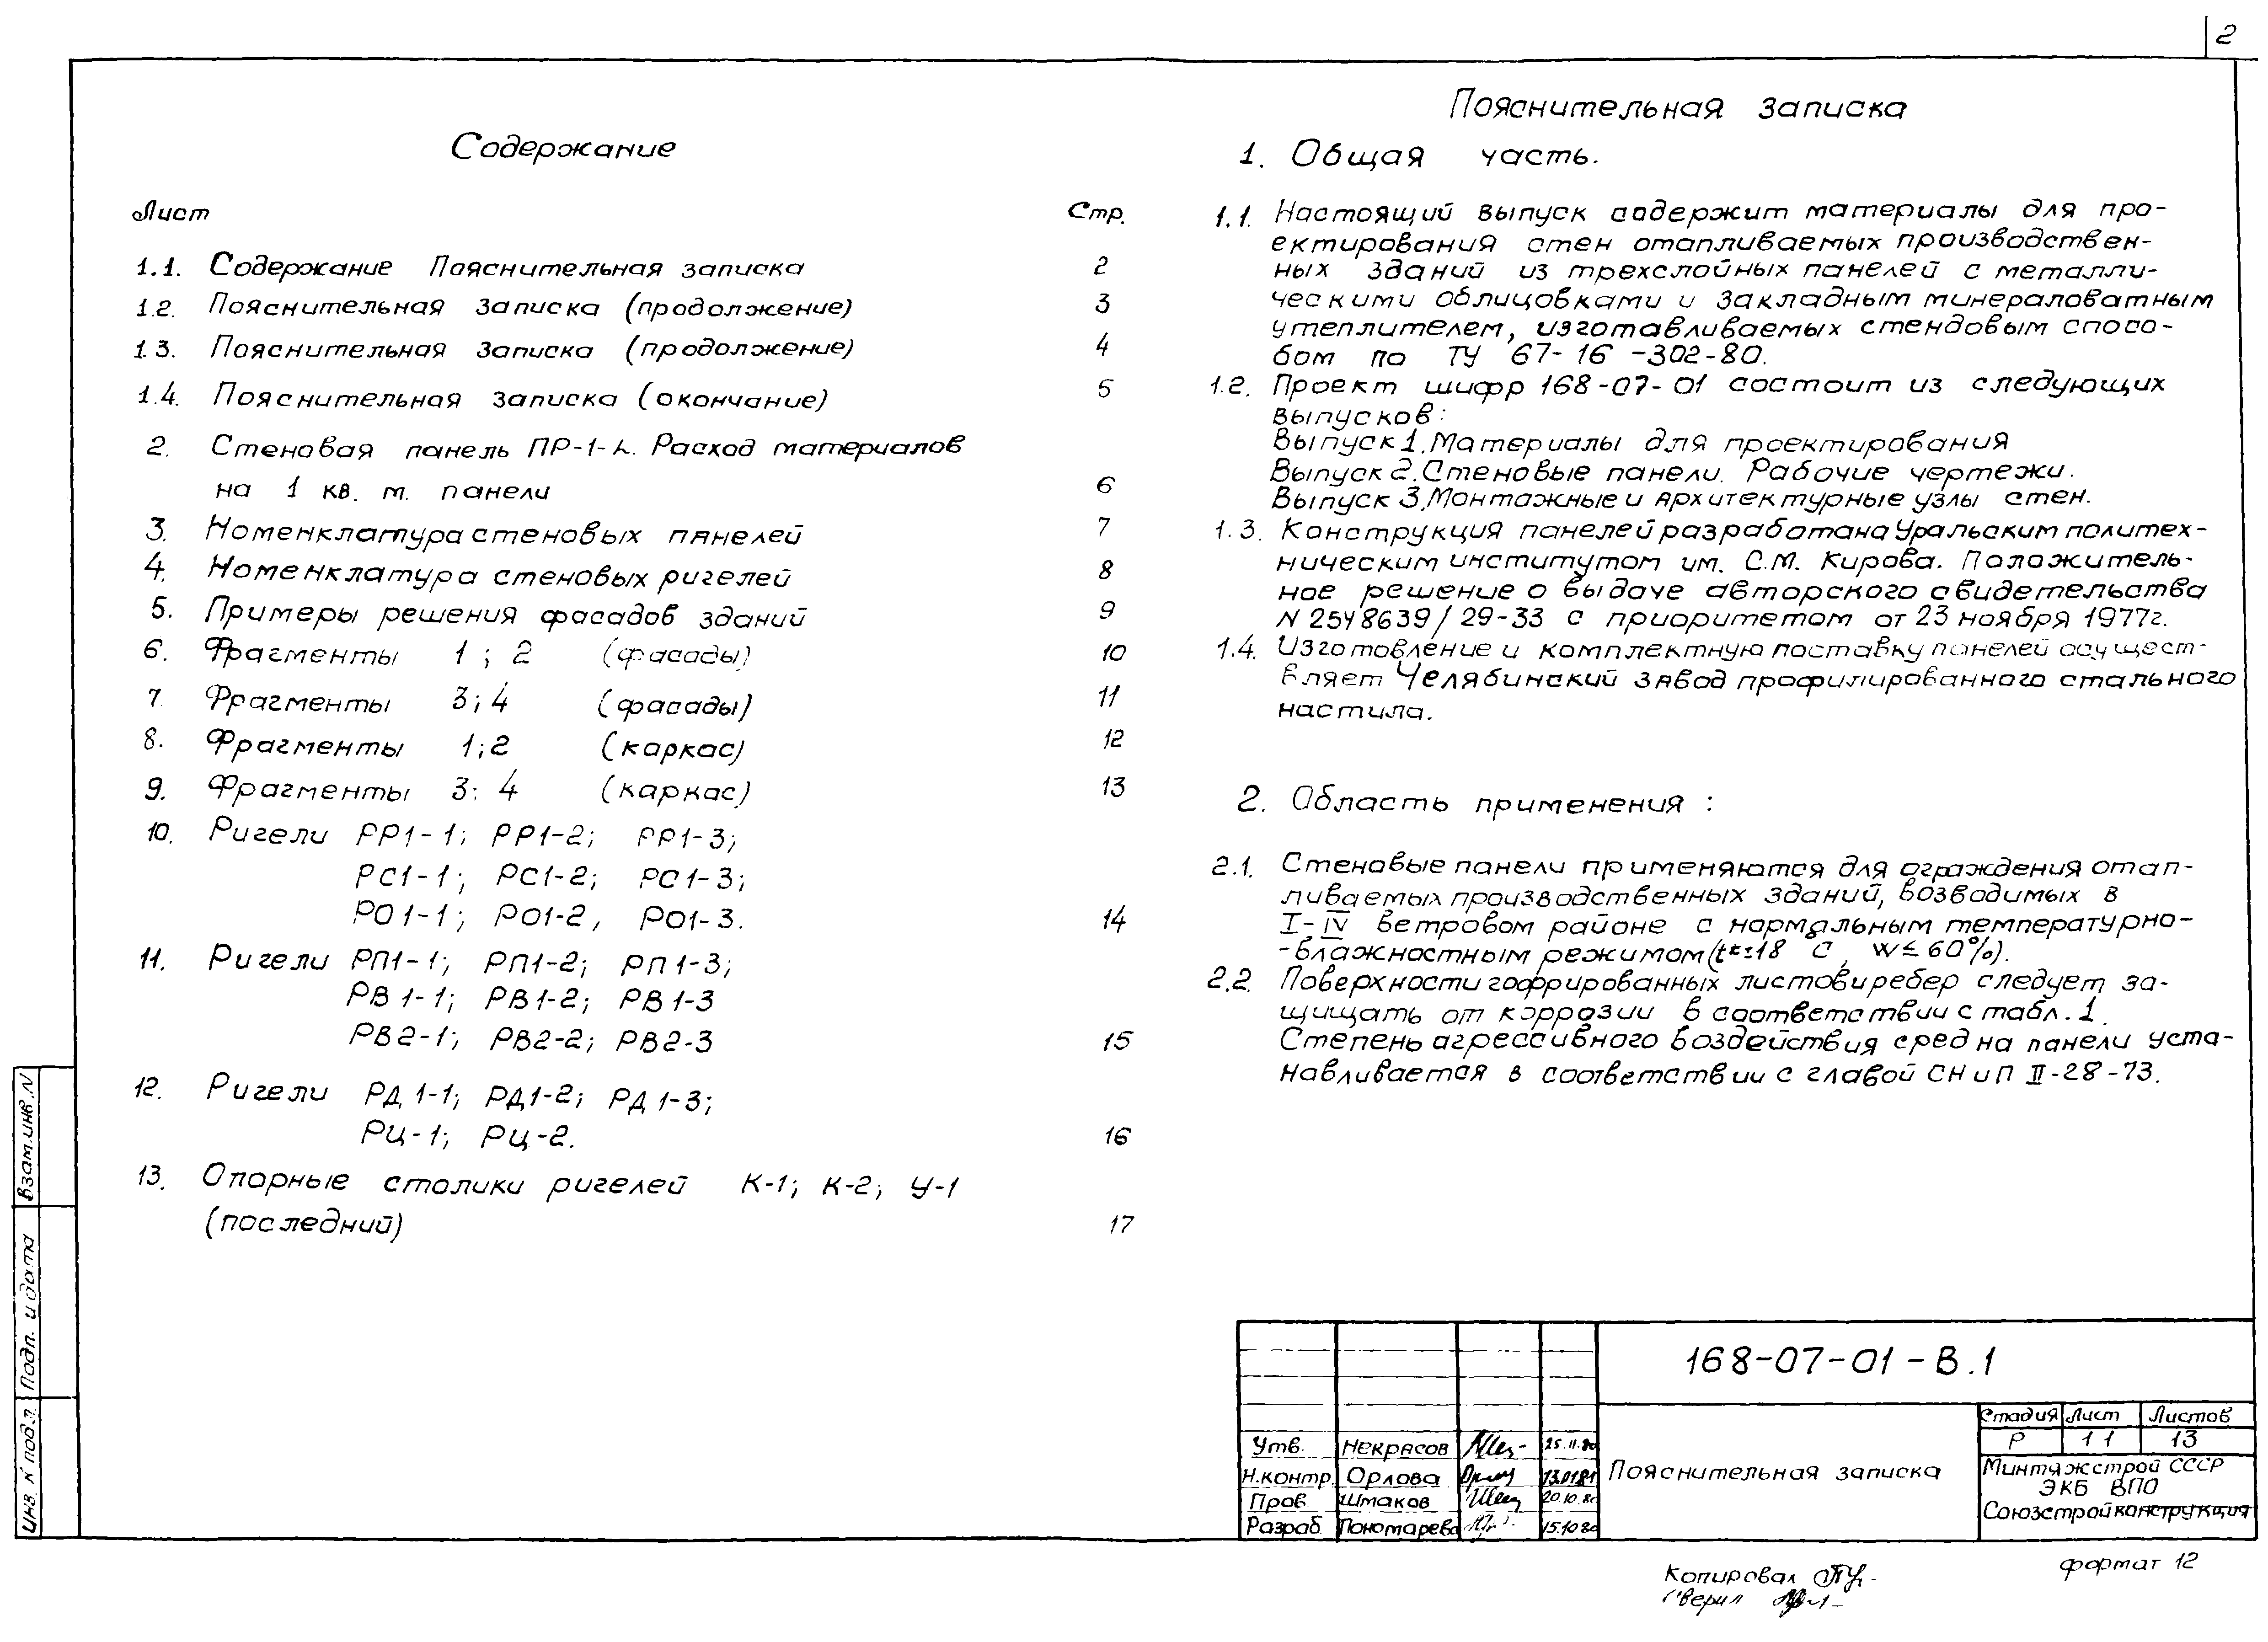 2
Содержание
Лист Стр.
1.1. Содержание Пояснительная записка 2
1.2. Пояснительная записка (продолжение) 3
1.3. Пояснительная записка (продолжение) 4
1.4. Пояснительная записка (окончание) 5
2. Стеновая панель ПР-1-А. Расход материалов
на 1 кв. м. панели 6
3. Номенклатура стеновых панелей 7
4. Номенклатура стеновых ригелей 8
5. Примеры решения фасадов зданий 9
6. Фрагменты 1; 2 (фасады) 10
7 Фрагменты 3; 4 (фасады) 11
8. Фрагменты 1;2 (каркас) 12
9. Фрагменты 3; 4 (каркас) 13
10. Ригели РР1-1; РР1-2; РР1-3;
РС1-1; РС1-2; РС1-3;
РО1-1; РО1-2, РО1-3. 14
11. Ригели РП1-1; РП1-2; РП1-3;
РВ1-1; РВ1-2; РВ1-3
РВ2-1; РВ2-2; РВ2-3 15
12. Ригели РД1-1; РД1-2; РД1-3;
РЦ-1; РЦ-2. 16
13. Опорные столики ригелей К-1; К-2; У-1
(последний) 17
Пояснительная записка
1. Общая часть.
1.1. Настоящий выпуск содержит материалы для про-
ектирования стен отапливаемых производствен-
ных зданий из трехслойных панелей с металли-
ческими облицовками и закладным минераловатным
утеплителем, изготавливаемых стендовым спосо-
бом по ТУ 67-16-302-80.
1.2. Проект шифр 168-07-01 состоит из следующих
выпусков:
Выпуск 1. Материалы для проектирования
Выпуск 2. Стеновые панели. Рабочие чертежи.
Выпуск 3. Монтажные и архитектурные узлы стен.
1.3. Конструкция панелей разработана Уральским политех-
ническим институтом им. С.М. Кирова. Положитель-
ное решение о выдаче авторского свидетельства
N 2548639/29-33 с приоритетом от 23 ноября 1977г.
1.4. Изготовление и комплектную поставку панелей осущест-
вляет Челябинский завод профилированного стального
настила.
2. Область применения :
2.1. Стеновые панели применяются для ограждения отап-
ливаемых производственных зданий, возводимых в
I-IV ветровом районе с нормальным температурно-
-влажностным режимом (t = 18° С, W ≤ 60%).
2.2. Поверхности гофрированных листов и ребер следует за-
щищать от коррозии в соответствии с табл. 1.
Степень агрессивного воздействия сред на панели уста-
навливается в соответствии с главой СНиП II-28-73.
Взам. инв. N
Подп. и дата
Инв. N подл.
168-07-01-В.1
Стадия Лист Листов
Р 1 1 13
Утв. Некрасов 25.11.80
Н.контр. Орлова 13.01.81
Пров. Шмаков 20.10.80
Разраб. Пономарева 15.10.80
Пояснительная записка
Минтяжстрой СССР
ЭКБ ВПО
Союзстройконструкция
Копировал
Сверил
формат 12